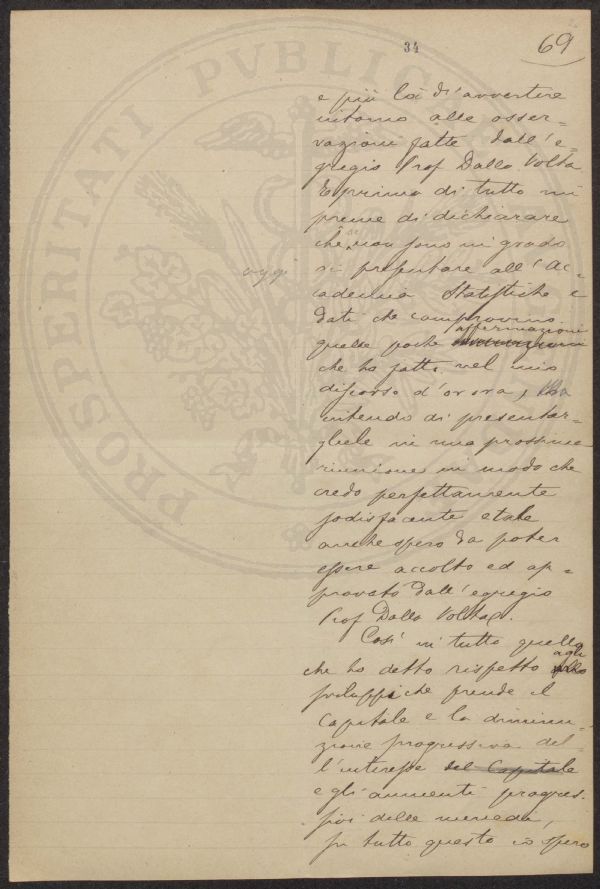 34
69
PROSPERITATI PVBLICAE
e più là di avvertire
intorno alle osser=
vazioni fatte dall'e=
gregio Prof Dalla Volta
E prima di tutto mi
preme di dichiarare
che, non sono in grado
oggi
di presentare all'Ac=
cademia Statistiche e
dati che comprovino
affermazioni
quelle poche
che ho fatte nel mio
discorso d'or ora, ma
intendo di presentar=
gliele in una prossima
riunione in modo che
credo perfettamente
sodisfacente e tale
anche spero da poter
essere accolto ed ap=
provato dall'egregio
Prof Dalla Volta.
Così in tutto quello
agli
che ho detto rispetto
sviluppi che prende il
Capitale e la diminu=
zione progressiva del=
l'interesse del Capitale
e gli aumenti progres=
sivi delle mercedi,
su tutto questo io spero